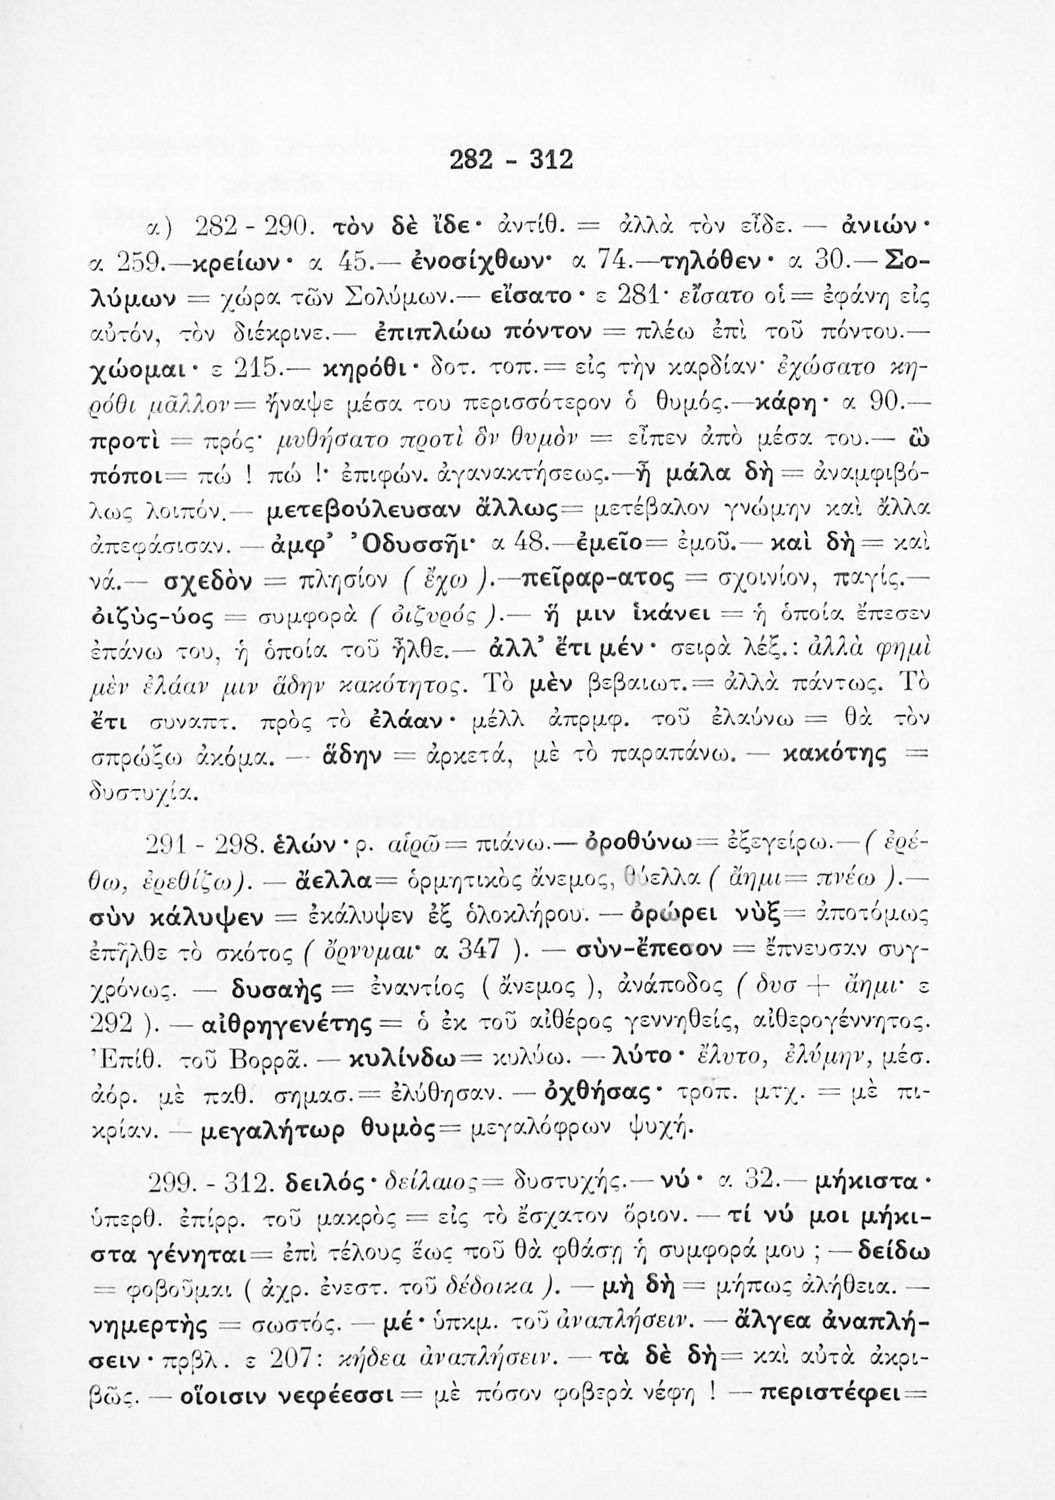 282 - 312
α) 282 - 290. τὸν δὲ ἴδε· ἀντίθ. = ἀλλὰ τὸν εἶδε. — ἀνιών·
α 259.—κρείων· α 45.— ἐνοσίχθων· α 74.—τηλόθεν· α 30.— Σο-
λύμων = χώρα τῶν Σολύμων.— εἴσατο· ε 281· εἴσατο οἱ= ἐφάνη εἰς
αὐτόν, τὸν διέκρινε.— ἐπιπλώω πόντον = πλέω ἐπὶ τοῦ πόντου.—
χώομαι· ε 215.— κηρόθι· δοτ. τοπ.= εἰς τὴν καρδίαν· ἐχώσατο κη-
ρόθι μᾶλλον= ἤναψε μέσα του περισσότερον ὁ θυμός.—κάρη· α 90.—
προτὶ = πρός· μυθήσατο προτὶ ὃν θυμὸν = εἶπεν ἀπὸ μέσα του.— ὢ
πόποι= πώ ! πώ !· ἐπιφών. ἀγανακτήσεως.—ἦ μάλα δὴ = ἀναμφιβό-
λως λοιπόν.— μετεβούλευσαν ἄλλως= μετέβαλον γνώμην καὶ ἄλλα
ἀπεφάσισαν. — ἀμφ’ Ὀδυσσῆι· α 48.—ἐμεῖο= ἐμοῦ.— καὶ δὴ = καὶ
νά.— σχεδὸν = πλησίον ( ἔχω ).—πεῖραρ-ατος = σχοινίον, παγίς.—
ὀιζὺς-ύος = συμφορὰ ( ὀιζυρός ).— ἥ μιν ἱκάνει = ἡ ὁποία ἔπεσεν
ἐπάνω του, ἡ ὁποία τοῦ ἦλθε.— ἀλλ’ ἔτι μέν· σειρὰ λέξ.: ἀλλὰ φημὶ
μὲν ἐλάαν μιν ἅδην κακότητος. Τὸ μὲν βεβαιωτ.= ἀλλὰ πάντως. Τὸ
ἔτι συναπτ. πρὸς τὸ ἐλάαν· μέλλ ἀπρμφ. τοῦ ἐλαύνω = θὰ τὸν
σπρώξω ἀκόμα. — ἅδην = ἀρκετά, μὲ τὸ παραπάνω. — κακότης =
δυστυχία.
291 - 298. ἑλών· ρ. αἱρῶ= πιάνω.— ὀροθύνω= ἐξεγείρω.—( ἐρέ-
θω, ἐρεθίζω). — ἄελλα= ὁρμητικὸς ἄνεμος, θύελλα ( ἄημι= πνέω ).—
σὺν κάλυψεν = ἐκάλυψεν ἐξ ὁλοκλήρου. — ὀρώρει νὺξ= ἀποτόμως
ἐπῆλθε τὸ σκότος ( ὄρνυμαι· α 347 ). — σὺν-ἔπεσον = ἔπνευσαν συγ-
χρόνως. — δυσαὴς = ἐναντίος ( ἄνεμος ), ἀνάποδος ( δυσ + ἄημι· ε
292 ). — αἰθρηγενέτης = ὁ ἐκ τοῦ αἰθέρος γεννηθείς, αἰθερογέννητος.
Ἐπίθ. τοῦ Βορρᾶ. — κυλίνδω= κυλύω. — λύτο· ἔλυτο, ἐλύμην, μέσ.
ἀόρ. μὲ παθ. σημασ.= ἐλύθησαν. — ὀχθήσας· τροπ. μτχ. = μὲ πι-
κρίαν. — μεγαλήτωρ θυμὸς= μεγαλόφρων ψυχή.
299. - 312. δειλός· δείλαιος= δυστυχής.— νύ· α 32.— μήκιστα·
ὑπερθ. ἐπίρρ. τοῦ μακρὸς = εἰς τὸ ἔσχατον ὅριον. — τί νύ μοι μήκι-
στα γένηται= ἐπὶ τέλους ἕως ποῦ θὰ φθάσῃ ἡ συμφορά μου ; — δείδω
= φοβοῦμαι ( ἀχρ. ἐνεστ. τοῦ δέδοικα ). — μὴ δὴ = μήπως ἀλήθεια. —
νημερτὴς = σωστός. — μέ· ὑπκμ. τοῦ ἀναπλήσειν. — ἄλγεα ἀναπλή-
σειν· πρβλ. ε 207: κήδεα ἀναπλήσειν. — τὰ δὲ δὴ= καὶ αὐτὰ ἀκρι-
βῶς. — οἵοισιν νεφέεσσι = μὲ πόσον φοβερὰ νέφη ! — περιστέφει=